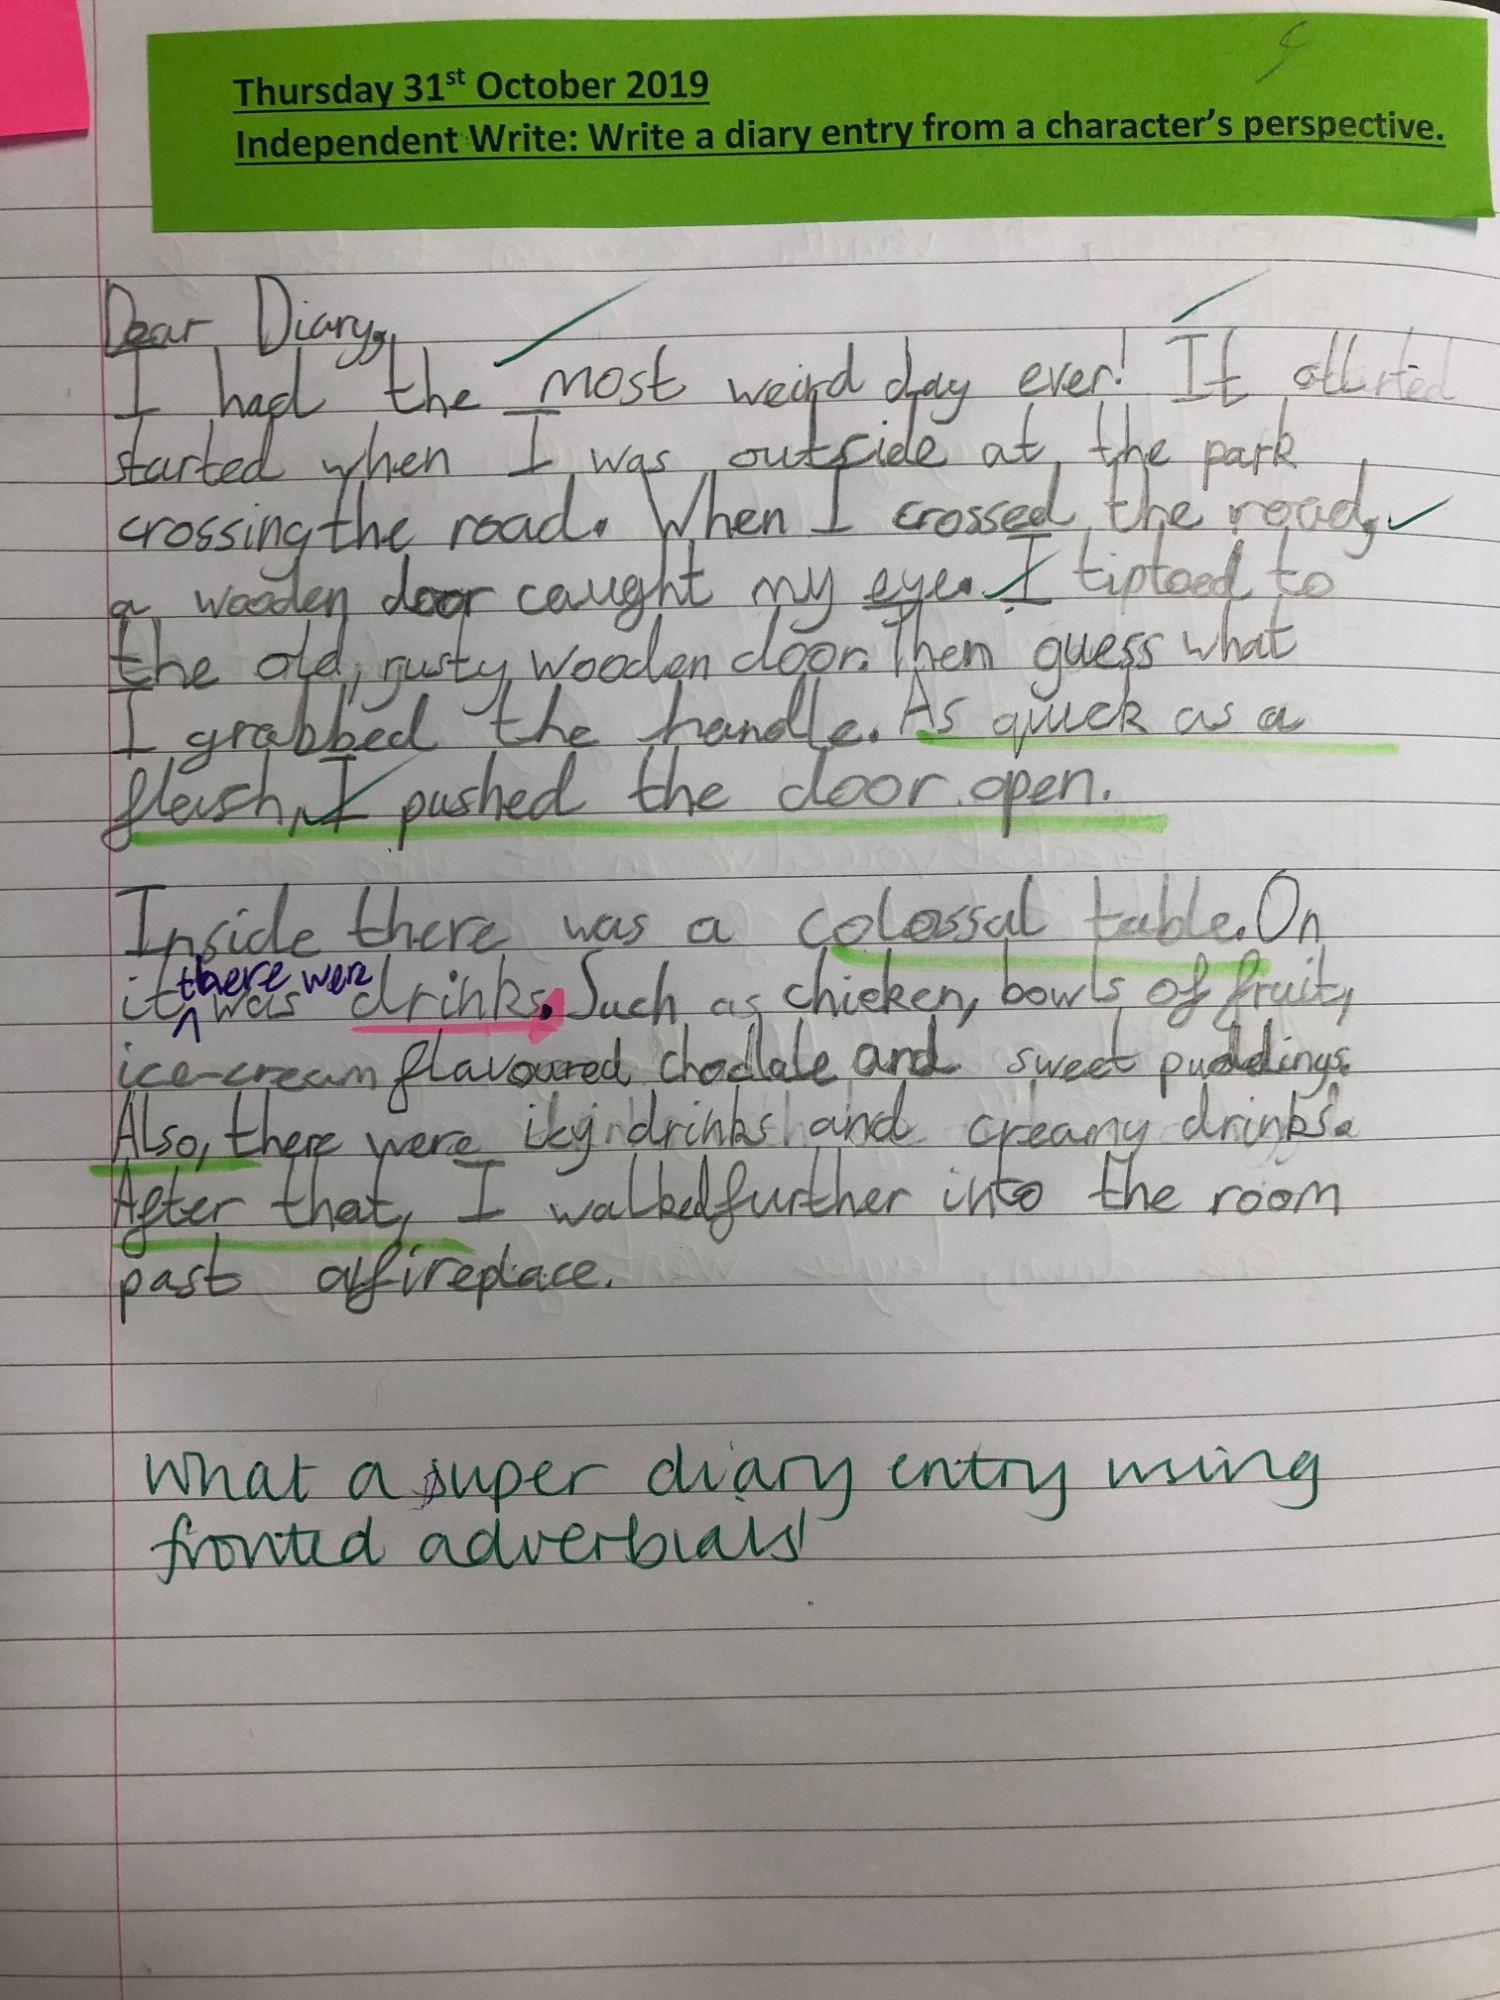 Thursday 31st October 2019
Independent Write: Write a diary entry from a character's perspective.
Dear Diary,
I had the most weird day ever! It all
started when I was outside at the park
crossing the road. When I crossed the road,
a wooden door caught my eye. I tiptoed to
the old, rusty wooden door. Then guess what
I grabbed the handle. As quick as a
flash, I pushed the door open.
Inside there was a colossal table. On
there were
it was drinks. Such as chicken, bowls of fruit,
ice-cream flavoured choclate and sweet puddings.
Also, there were drinks and creamy drinks.
After that, I walked further into the room
past a fireplace.
What a super diary entry using
fronted adverbials!